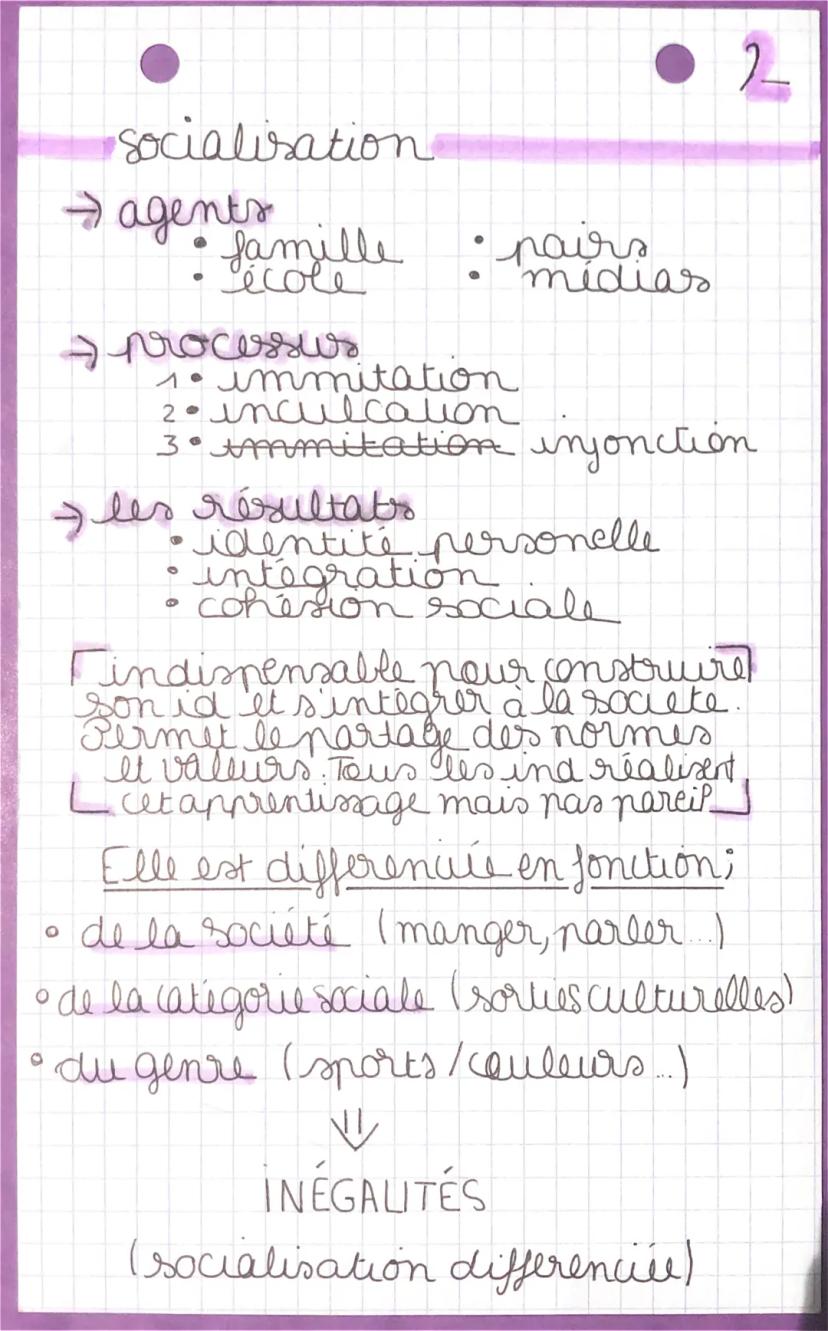 2
socialisation
→ agents
• famille • pairs
• école • médias
→ processus
1 • immitation
2 • inculcation
3 • immitation injonction
→ les résultats
• identité personelle
• intégration
• cohésion sociale
indispensable pour construire
son id et s'intégrer à la société.
Permet le partage des normes
et valeurs. Tous les ind réalisent
cet apprentissage mais pas pareil
Elle est differenciée en fonction;
• de la société (manger, parler...)
• de la catégorie sociale (sorties culturelles)
• du genre (sports/couleurs...)
⇓
INÉGALITÉS
(socialisation differenciée)